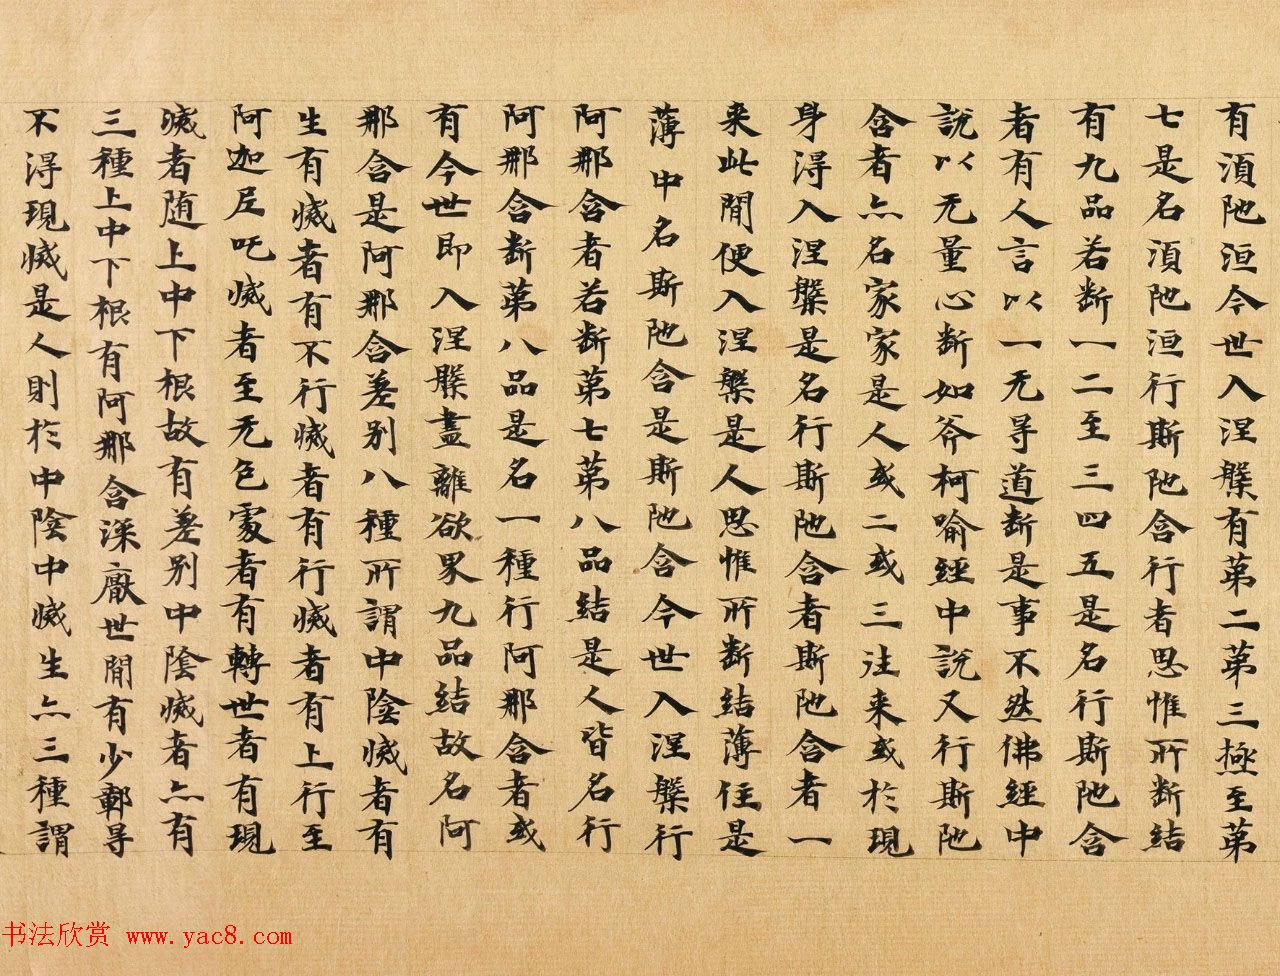 有須陁洹今世入涅槃有第二第三極至第
七是名須陁洹行斯陁含行者思惟所断結
有九品若断一二至三四五是名行斯陁含
者有人言以一无㝵道断是事不然佛經中
說以无量心断如斧柯喻經中說又行斯陁
含者亦名家家是人或二或三注来或於現
身淂入涅槃是名行斯陁含者斯陁含者一
来此間便入涅槃是人思惟所断結薄住是
薄中名斯陁含是斯陁含今世入涅槃行
阿那含者若断第七第八品結是人皆名行
阿那含断第八品是名一種行阿那含者或
有今世即入涅槃盡離欲界九品結故名阿
那含是阿那含差别八種所謂中陰滅者有
生有滅者有不行滅者有行滅者有上行至
阿迦尼吒滅者至无色處者有轉世者有現
滅者随上中下根故有差别中陰滅者亦有
三種上中下根有阿那含深厭世間有少鄣㝵
不淂現滅是人則於中陰中滅生亦三種謂
书法欣赏 www.yac8.com